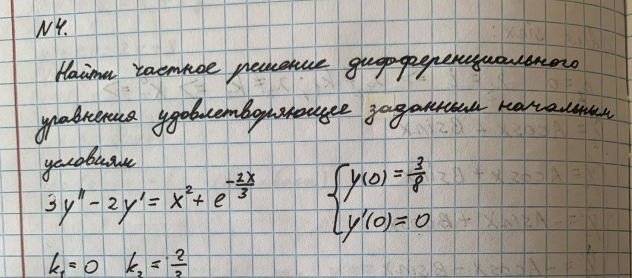 N4.
Найти частное решение дифференциального
уравнения удовлетворяющее заданным начальным
условиям
3y'' - 2y' = x² + e^(-2x/3) { y(0) = -3/8
y'(0) = 0
k₁ = 0 k₂ =